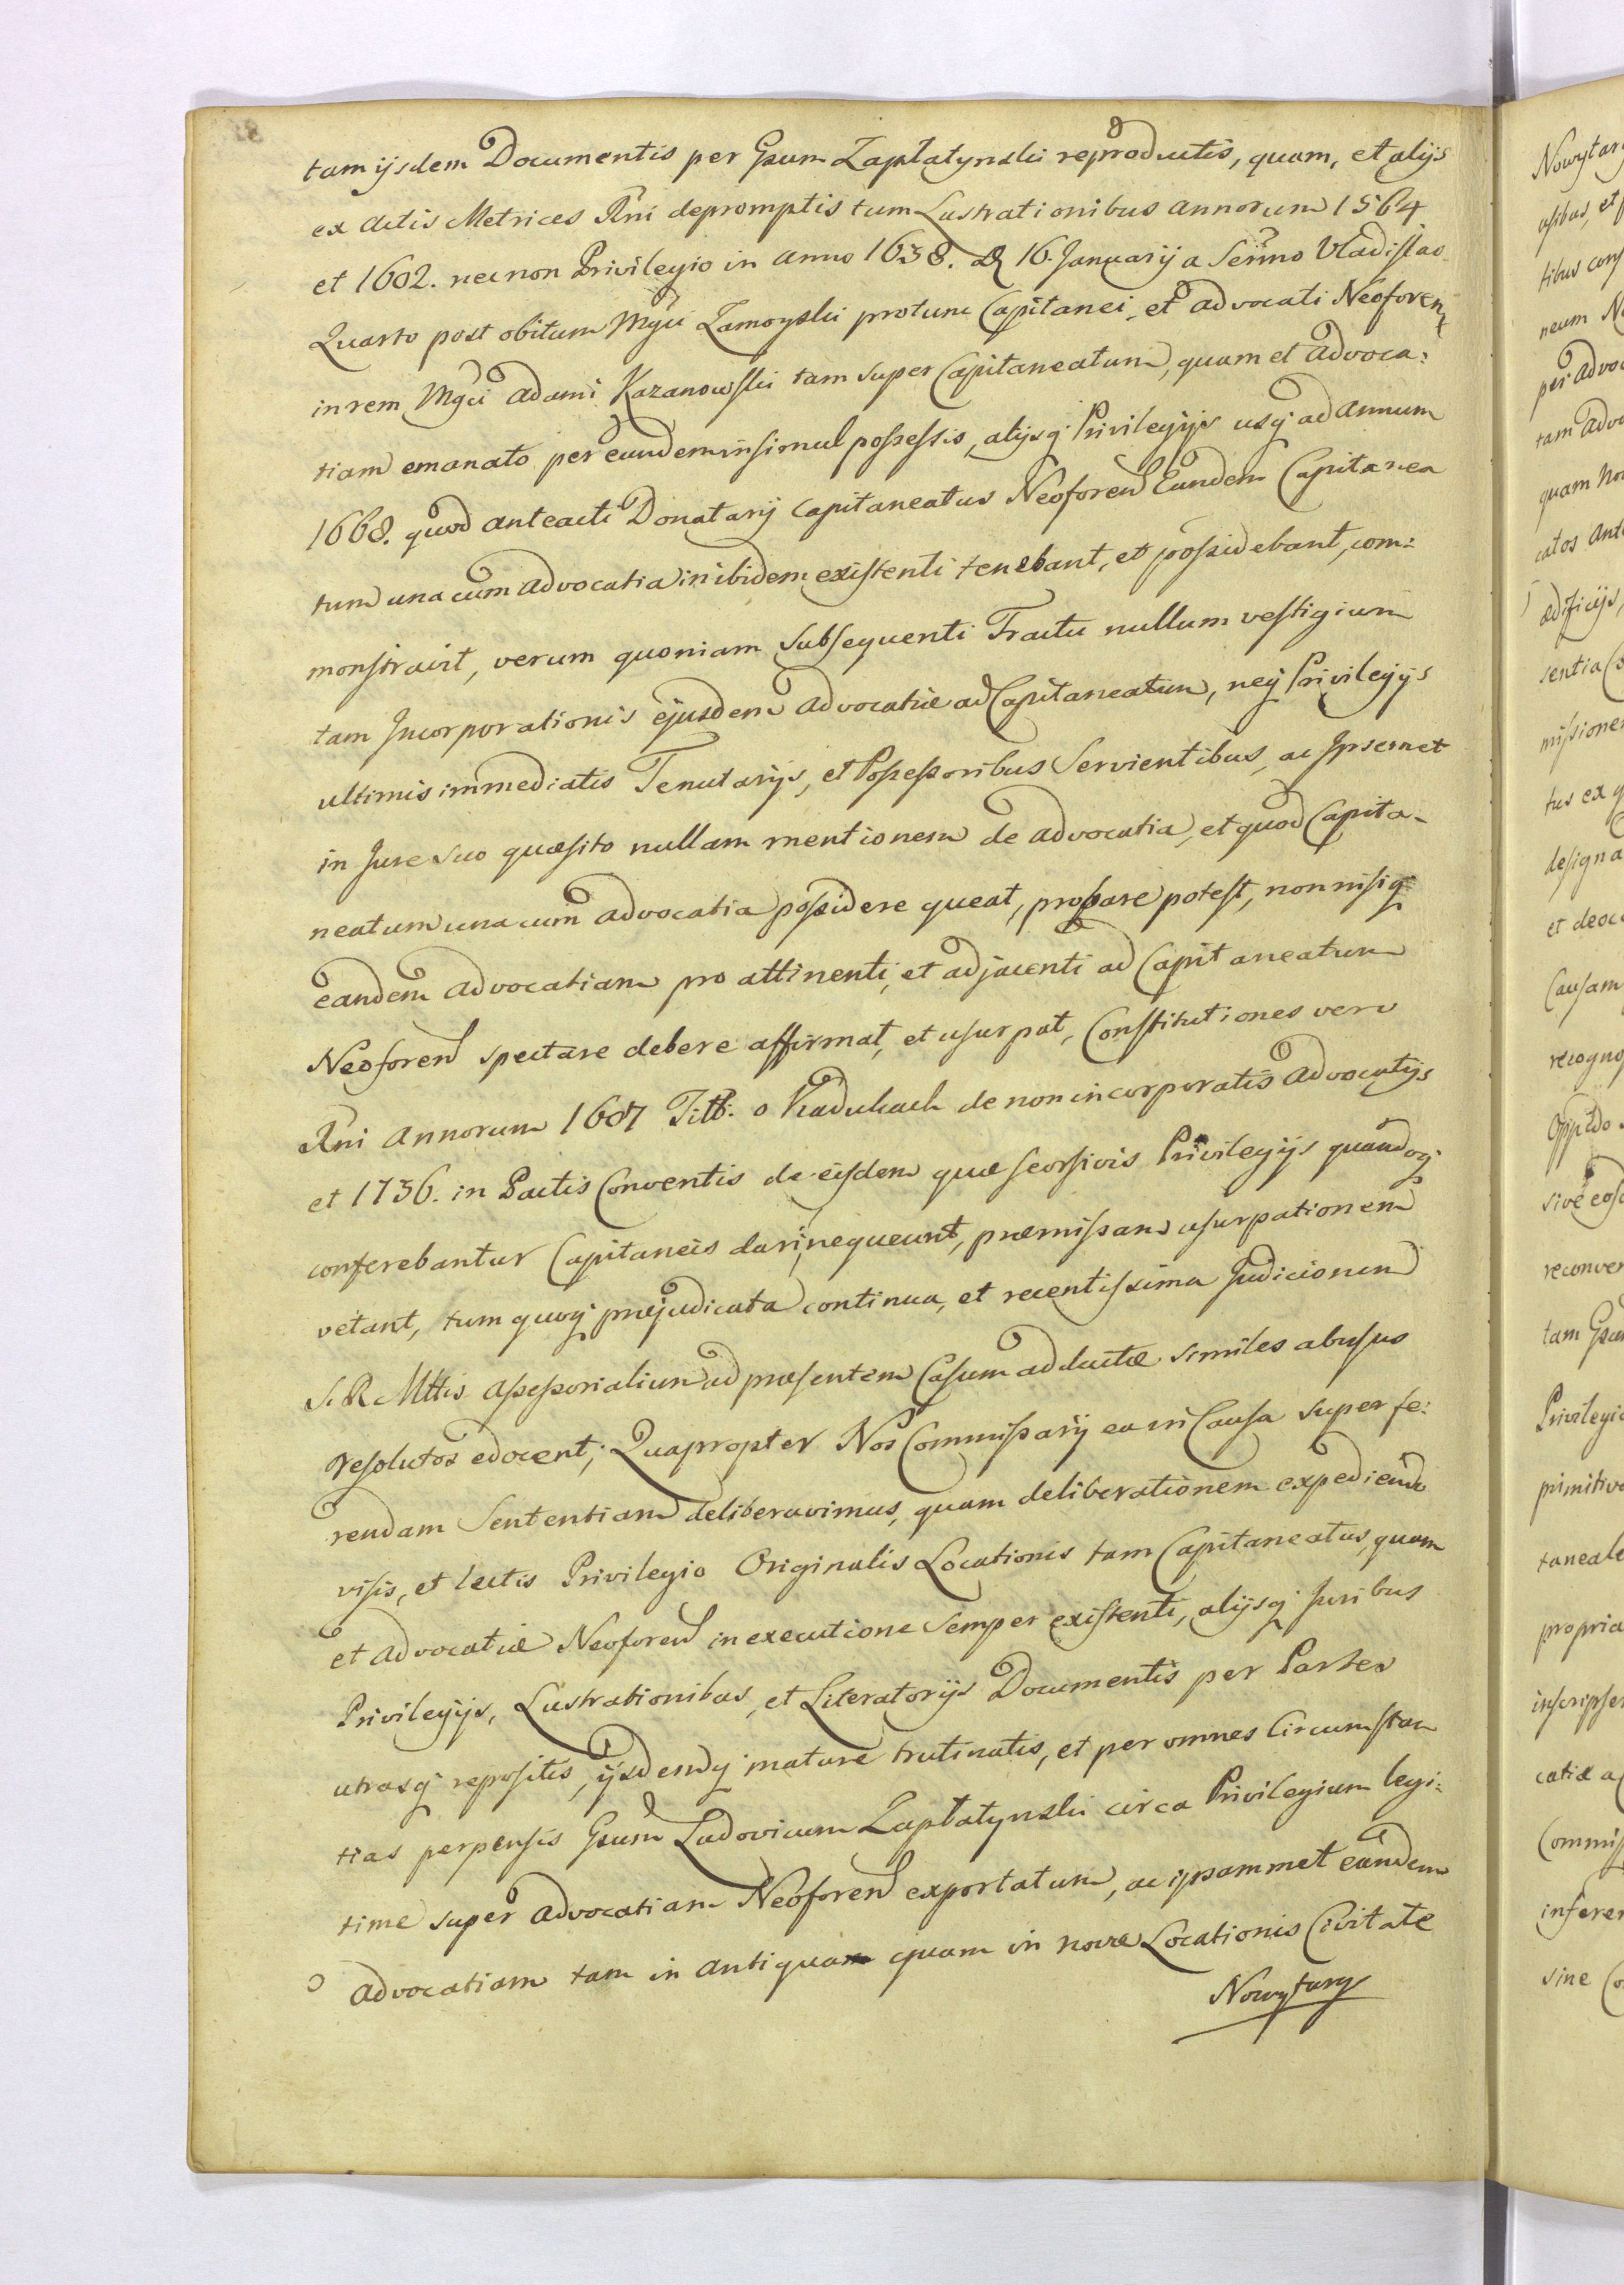 tam ijsdem Documentis per Gsum Zaplatynski reproductis, quam, et alijs
ex Actis Metrices Rni depromptis tum Lustrationibus Annorum 1564
et 1602. necnon Privilegio in Anno 1638. D 16. Januarij a Sermo Vladislao
Quarto post obitum Mgci Zamoyski protunc Capitanei, et Advocati Neoforen
in rem Mgci Adami Kazanowski tam super Capitaneatum, quam et Advoca:
tiam emanato per eundem insimul possessis, alijsq Privilegijs usq ad Annum
1668. quod anteacti Donatarij Capitaneatus Neoforen Eundem Capitanea
tum una cum Advocatia inibidem existenti tenebant, et possidebant, com:
monstravit, verum quoniam subsequenti Tractu nullum vestigium
tam Incorporationis ejusdem Advocatiæ ad Capitaneatum, neq Privilegijs
ultimis immediatis Tenutarijs, et Possessoribus Servientibus, ac Ipsemet
in Jure suo quæsito nullam mentionem de Advocatia, et quod Capita-
neatum una cum Advocatia possidere queat, probare potest, non nisi q
eandem Advocatiam pro attinenti, et adjacenti ad Capitaneatum
Neoforen spectare debere affirmat, et usurpat, Constitutiones vero
Rni Annorum 1607 Titt: o Kadukach de non incorporatis Advocatijs
et 1736. in Pactis Conventis de eisdem quæ seorsivis Privilegijs quandoq
conferebantur Capitaneis dari nequeunt, præmissam usurpationem
vetant, tum quoq præjudicata continua, et recentissima Judiciorum
S. R. Mttis Assessorialium ad præsentem Casum adductæ similes abusus
resolutos edocent; Quapropter Nos Commissarij ea in Causa super fe:
rendam Sententiam deliberavimus, quam deliberationem expediendo
visis, et lectis Privilegio Originalis Locationis tam Capitaneatus, quam
et Advocatiæ Neoforen in executione semper existenti, alijsq Juribus
Privilegijs, Lustrationibus, et Literatorijs Documentis per Partes
utrasq repositis, ijsdemq mature trutinatis, et per omnes Circumstan
tias perpensis Gsum Ludovicum Zaplatynski circa Privilegium legi:
time super Advocatiam Neoforen exportatum, ac ipsammet eandem
Advocatiam tam in antiqua quam in novæ Locationis Civitate
Nowytarg